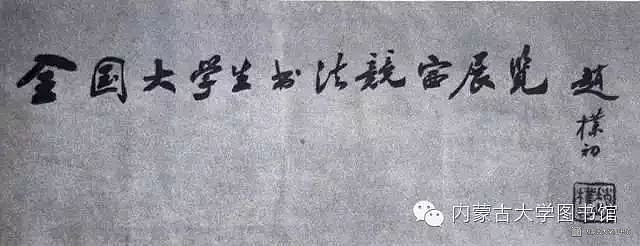 全国大学生书法競赛展览
趙樸初
内蒙古大学图书馆